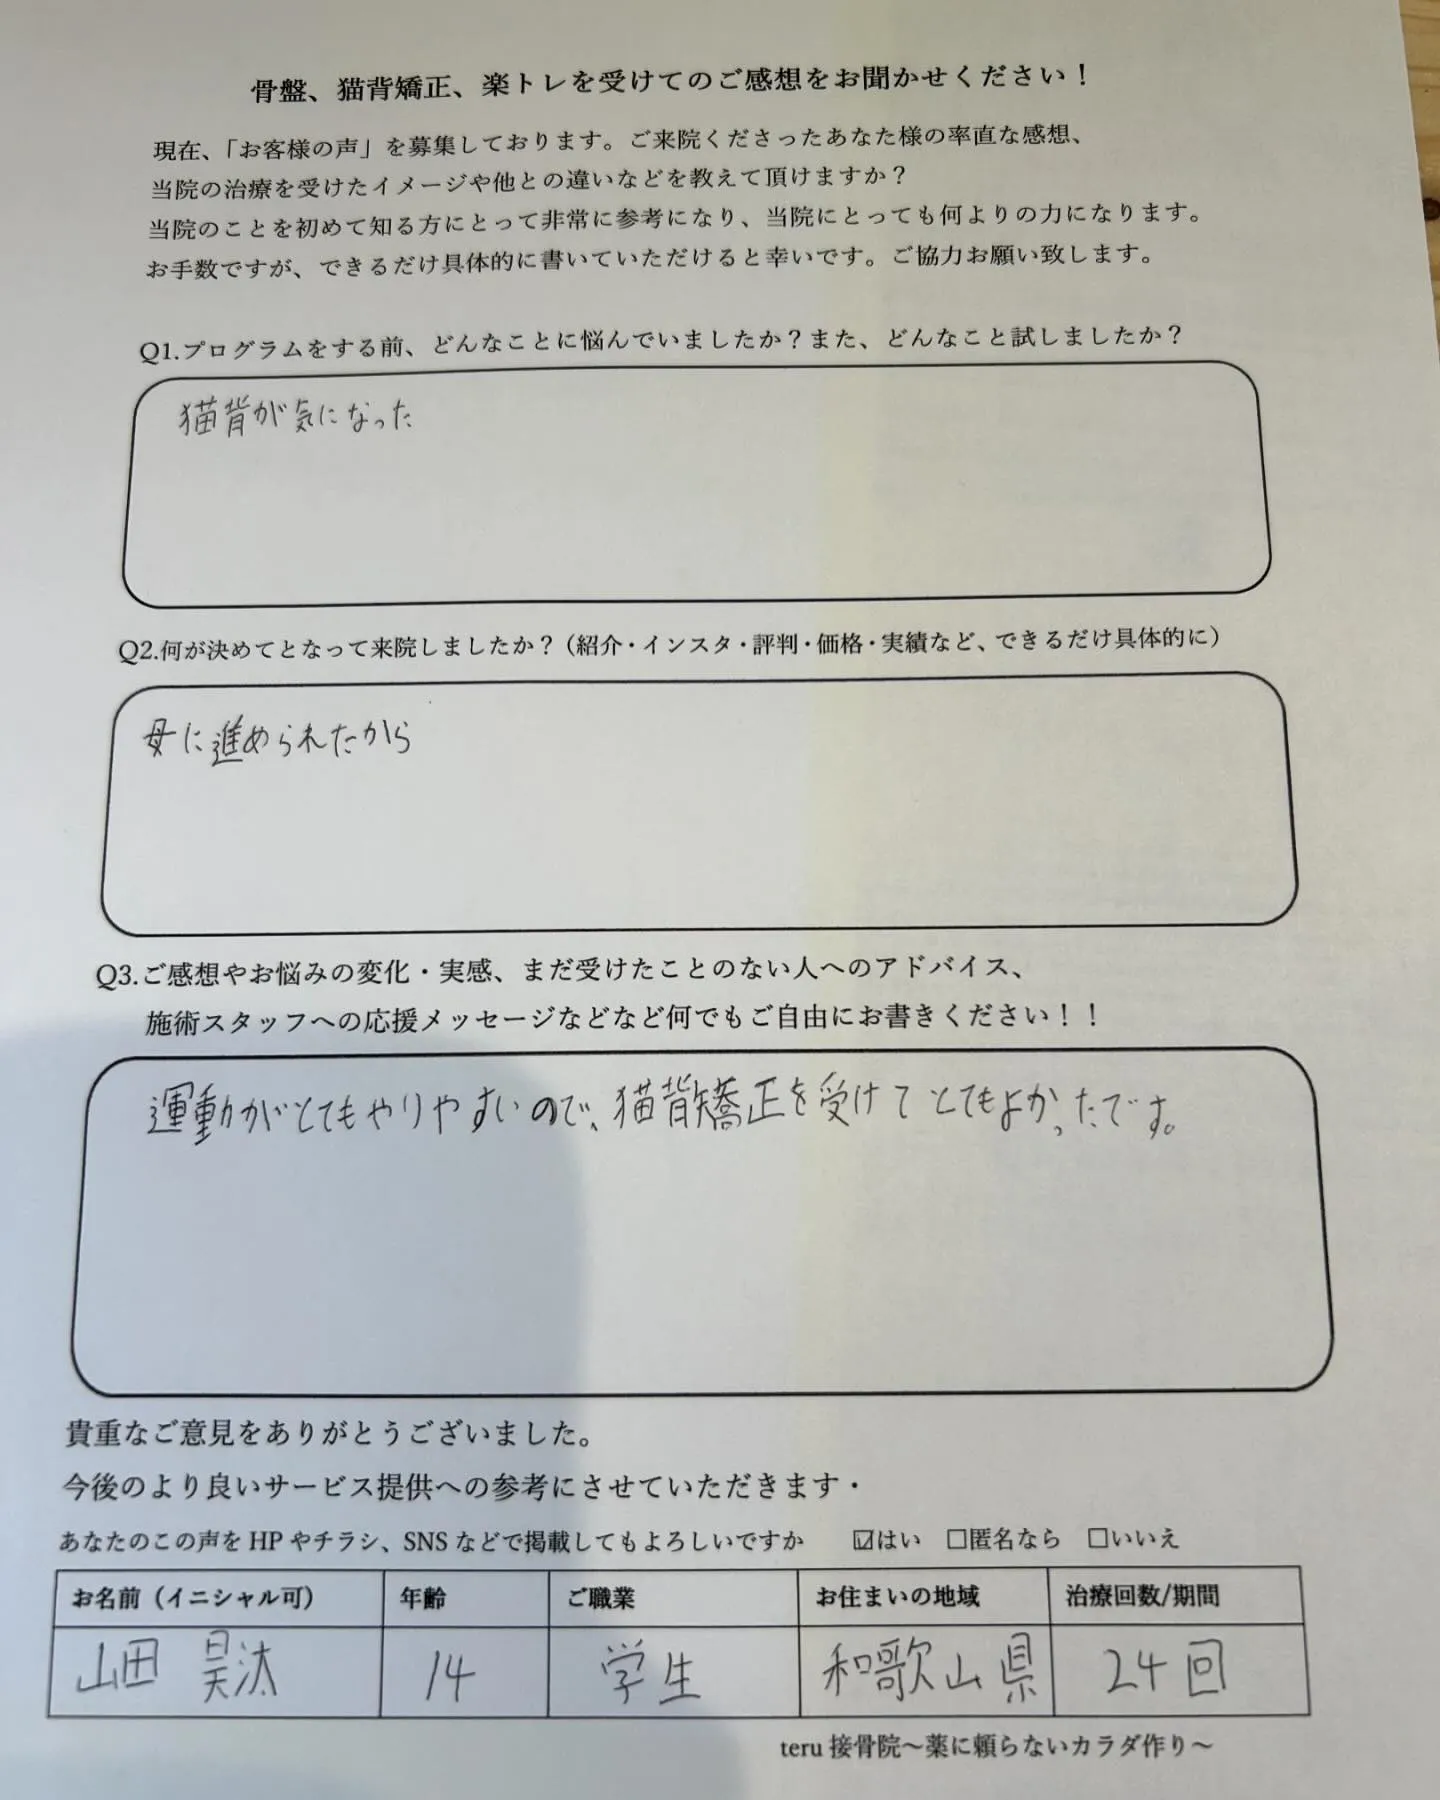 骨盤、猫背矯正、楽トレを受けてのご感想をお聞かせください！
現在、「お客様の声」を募集しております。ご来院くださったあなた様の率直な感想、
当院の治療を受けたイメージや他との違いなどを教えて頂けますか？
当院のことを初めて知る方にとって非常に参考になり、当院にとっても何よりの力になります。
お手数ですが、できるだけ具体的に書いていただけると幸いです。ご協力お願い致します。
Q1.プログラムをする前、どんなことに悩んでいましたか？また、どんなこと試しましたか？
猫背が気になった
Q2.何が決めてとなって来院しましたか？（紹介・インスタ・評判・価格・実績など、できるだけ具体的に）
母に進められたから
Q3.ご感想やお悩みの変化・実感、まだ受けたことのない人へのアドバイス、
施術スタッフへの応援メッセージなどなど何でもご自由にお書きください！！
運動がとてもやりやすいので、猫背矯正を受けてとてもよかったです。
貴重なご意見をありがとうございました。
今後のより良いサービス提供への参考にさせていただきます・
あなたのこの声を HP やチラシ、SNS などで掲載してもよろしいですか ☑はい □匿名なら □いいえ
お名前（イニシャル可） 年齢 ご職業 お住まいの地域 治療回数/期間
山田 昊汰 14 学生 和歌山県 24回
teru 接骨院～薬に頼らないカラダ作り～